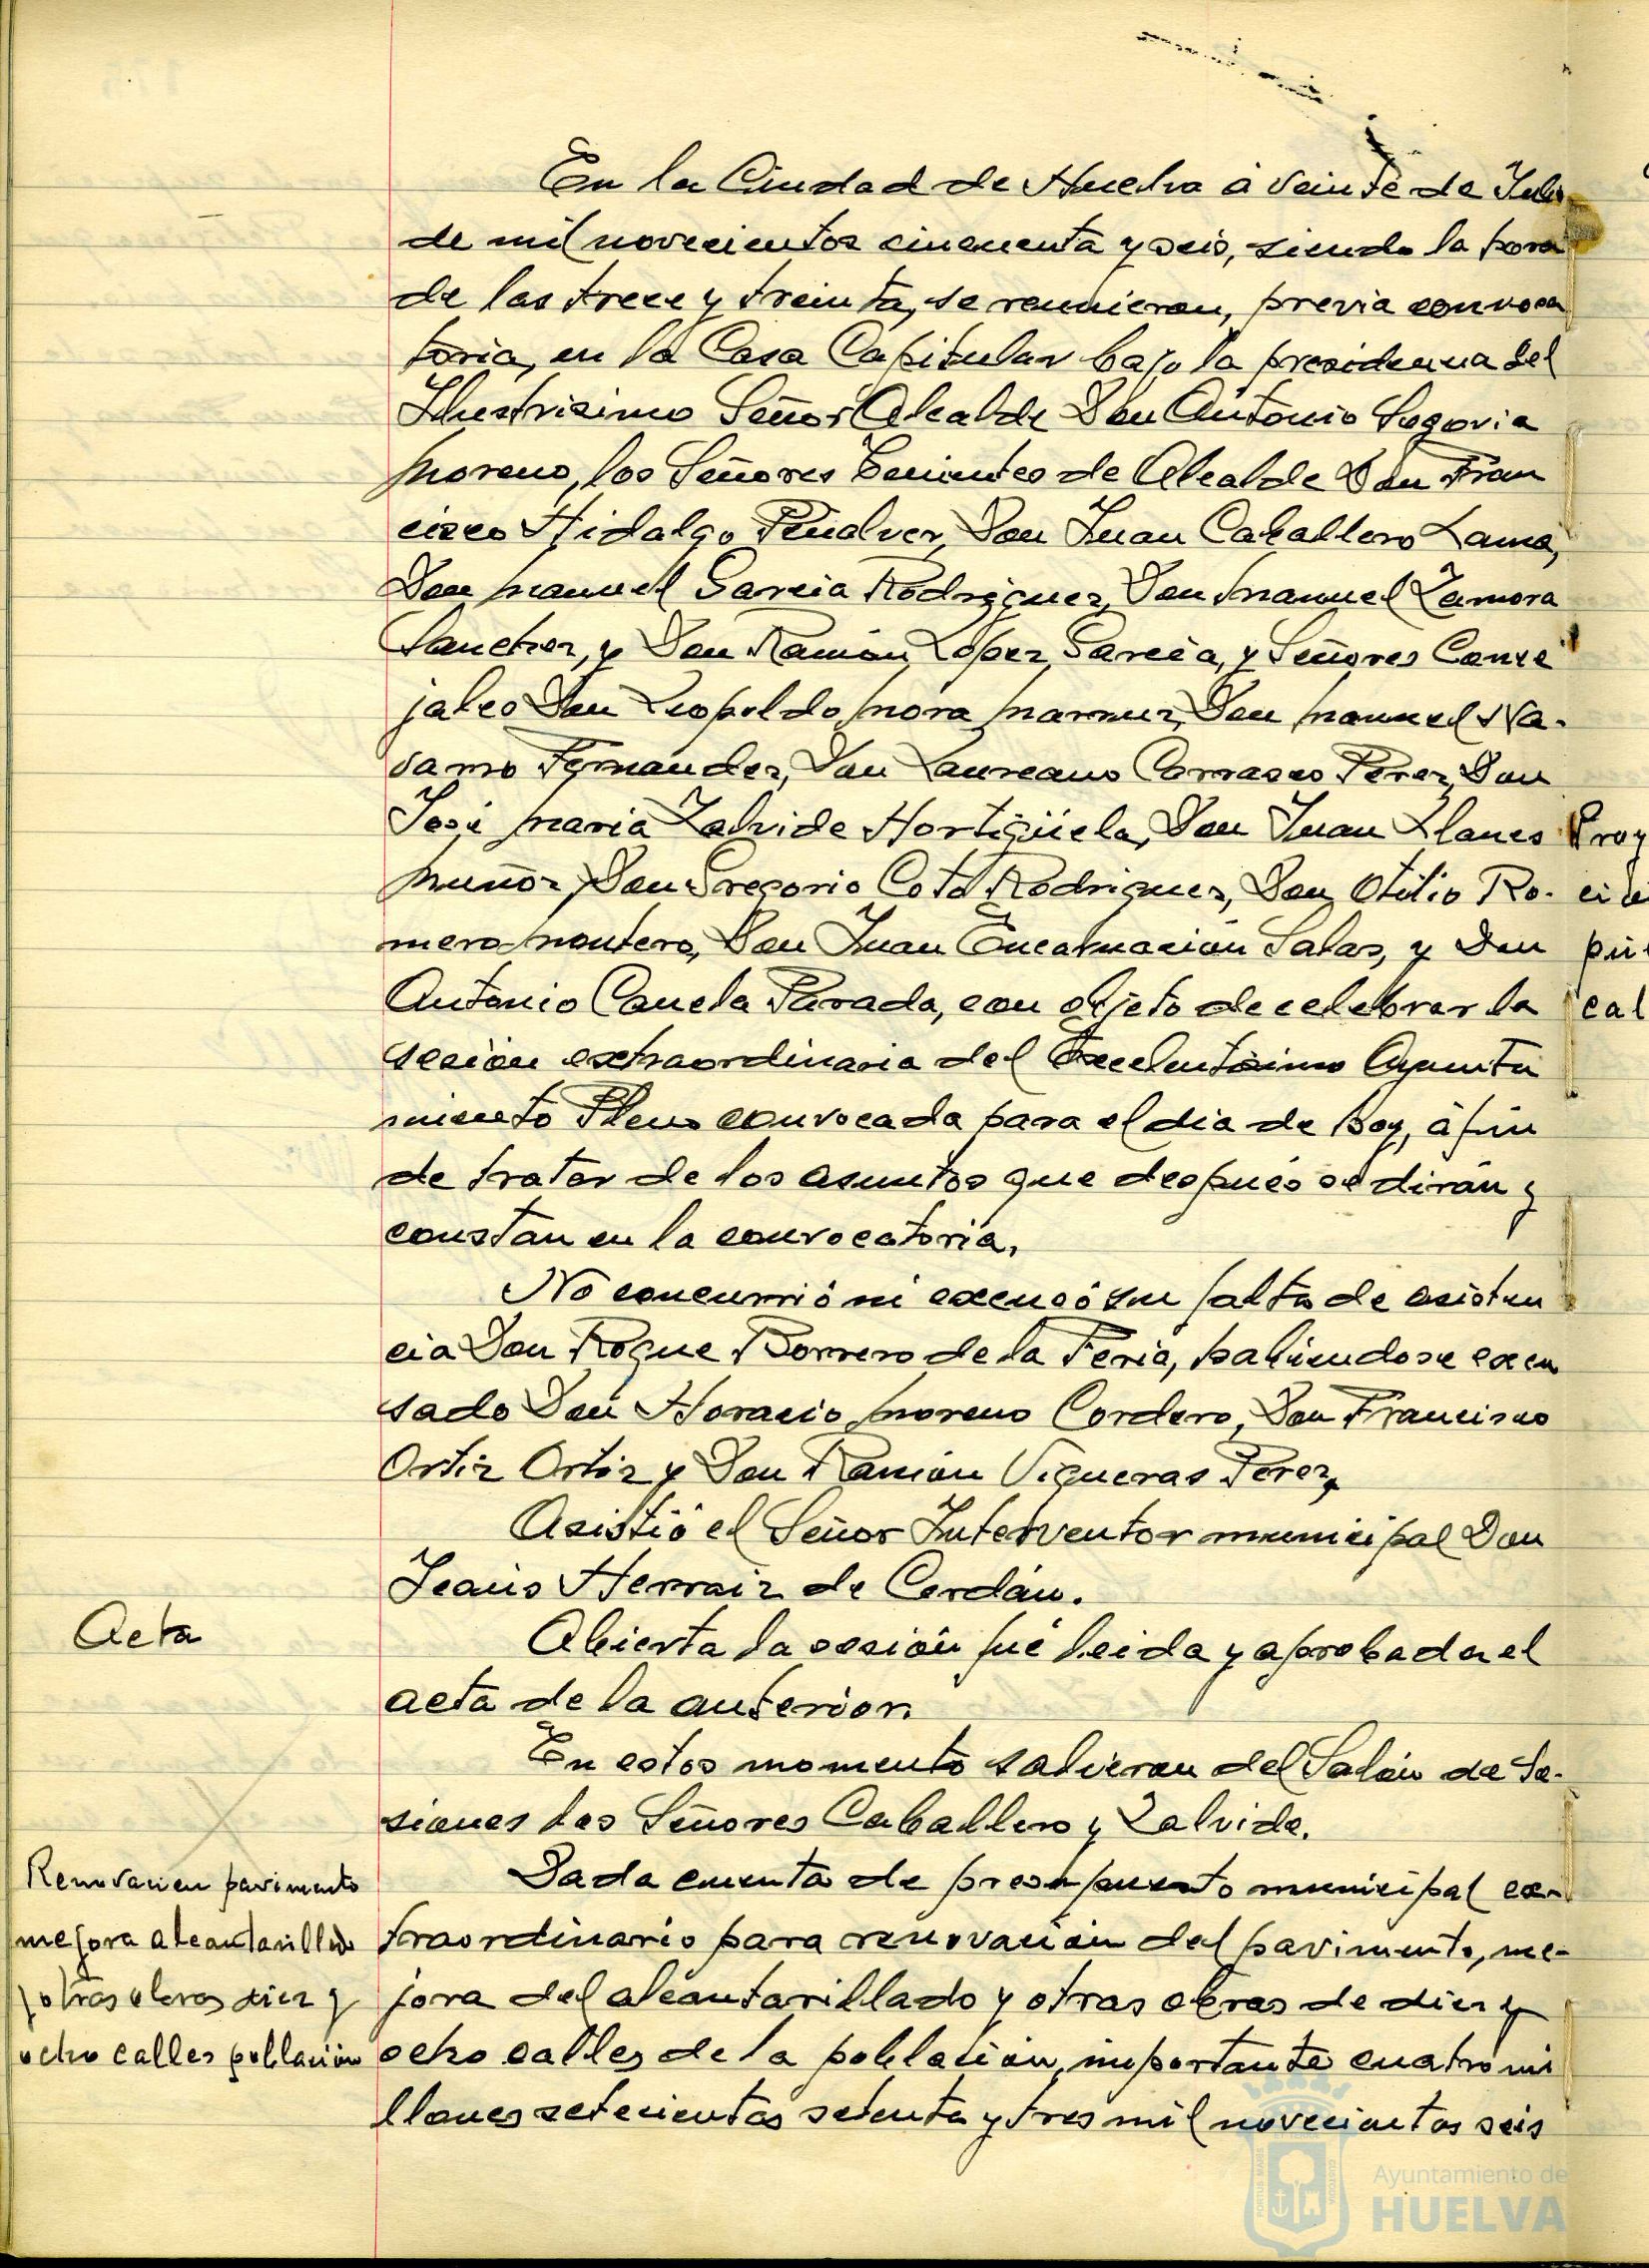 En la Ciudad de Huelva á veinte de Julio
de mil novecientos cincuenta y seis, siendo la hora
de las trece y treinta, se reunieron, previa convoca
toria, en la Casa Capitular bajo la presidencia del
Ilustrisimo Señor Alcalde Don Antonio Segovia
Moreno, los Señores Tenientes de Alcalde Don Fran
cisco Hidalgo Peñalver, Don Juan Caballero Lama,
Don Manuel Garcia Rodriguez, Don Manuel Zamora
Sanchez, y Don Ramón López Garcia, y Señores Conce
jales Don Leopoldo Mora Don Manuel Na-
varro Fernandez, Don Laureano Carrasco Perez, Don
José Maria Zalvide Hortigüela, Don Juan Llanes
Muñoz, Don Gregorio Coto Rodriguez, Don Otilio Ro-
mero Montero, Don Juan Encarnación Salas, y Don
Antonio Canela Parada, con objeto de celebrar la
sesión extraordinaria del Excelentisimo Ayunta
miento Pleno convocada para el dia de hoy, á fin
de tratar de los asuntos que después se dirán y
constan en la convocatoria.
No concurrió ni excusó su falta de asisten
cia Don Roque Borrero de la Feria, habiendose excu
sado Don Horacio Moreno Cordero, Don Francisco
Ortiz Ortiz y Don Ramón Vigueras Perez.
Asistió el Señor Interventor municipal Don
Jesús Herraiz de Cerdán.
Acta
Abierta la sesión fué leida y aprobada el
acta de la anterior.
En estos momento salieron del Salón de Se-
siones los Señores Caballero y Zalvide.
Renovacion pavimento
mejora alcantarillado
y otras obras diez y
ocho calles población
Dada cuenta de presupuesto municipal ex-
traordinario para renovación del pavimento, me-
jora del alcantarillado y otras obras de diez y
ocho calles de la población, importante cuatro mi
llones setecientas setenta y tres mil novecientas seis
Proy
pú
cal
Ayuntamiento de
HUELVA